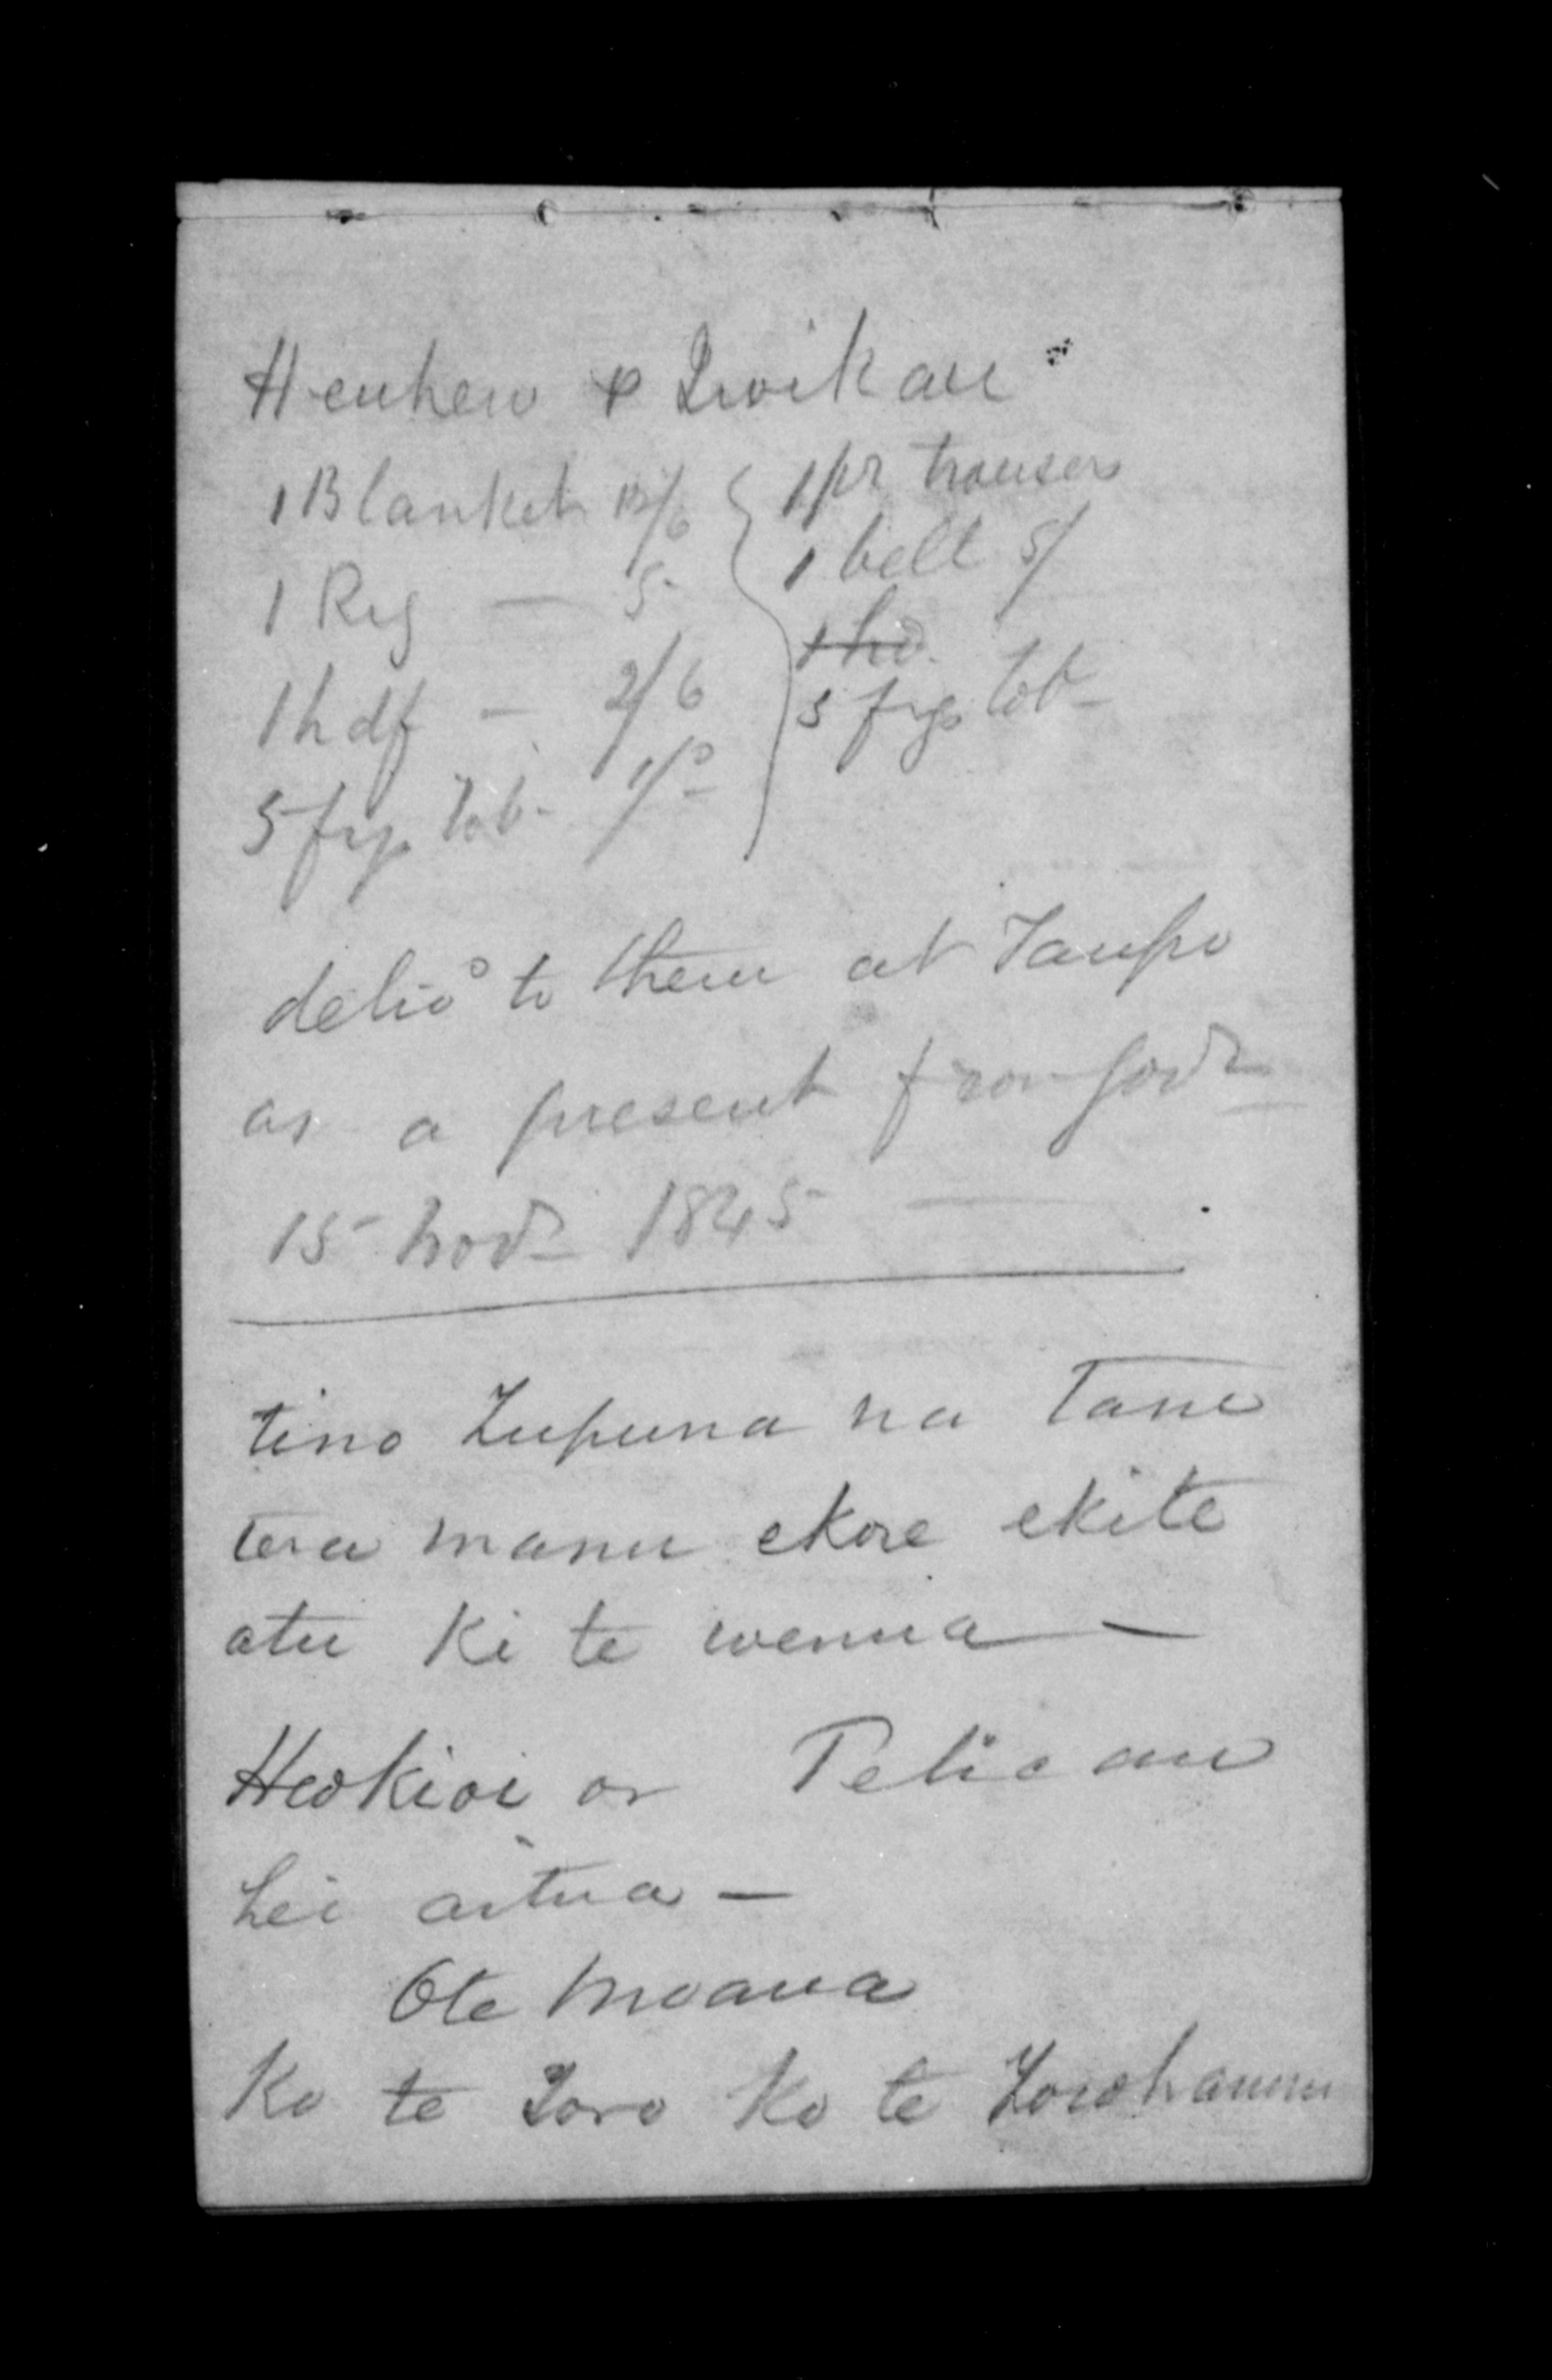 Heuheu & Iwikau
1 Blanket 12/6 1 pr trousers
1 Reg — 5 1 belt 5/
1 hdf — 2/6 1 hd
5 figs Tob. 1/0 5 figs tob
deliv^d to them at Taupo
as a present from Gov^t
15 Nov^r 1845 —
tino Tupuna na Tane
tera manu ekore ekite
atu ki te wenua —
Heokioi or Pelican
hei aitua —
Ote Moana
Ko te Toro Ko te